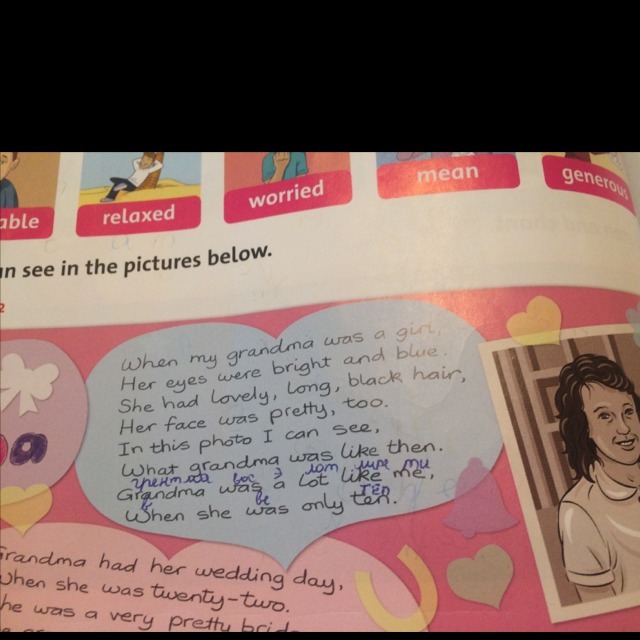 able
relaxed
worried
mean
generous
n see in the pictures below.
2
When my grandma was a girl,
Her eyes were bright and blue.
She had lovely, long, black hair,
Her face was pretty, too.
In this photo I can see,
What grandma was like then.
Grandma was a lot like me,
When she was only ten.
Grandma had her wedding day,
When she was twenty-two.
he was a very pretty brid